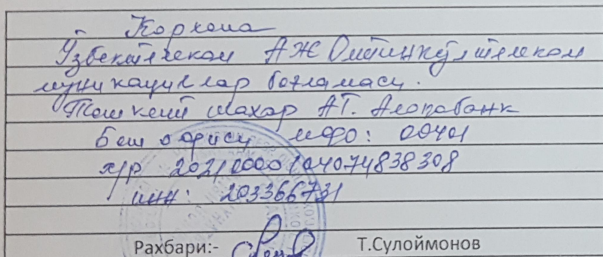 Корхона
Ўзбектелеком АЖ Олтинкўл телеком
муникациялар боғламаси.
Тошкент шахар АТ. Алоқабанк
Бош офиси мфо: 00401
х/р 20210000104074838308
инн: 203366731
Рахбари:- Т.Сулоймонов